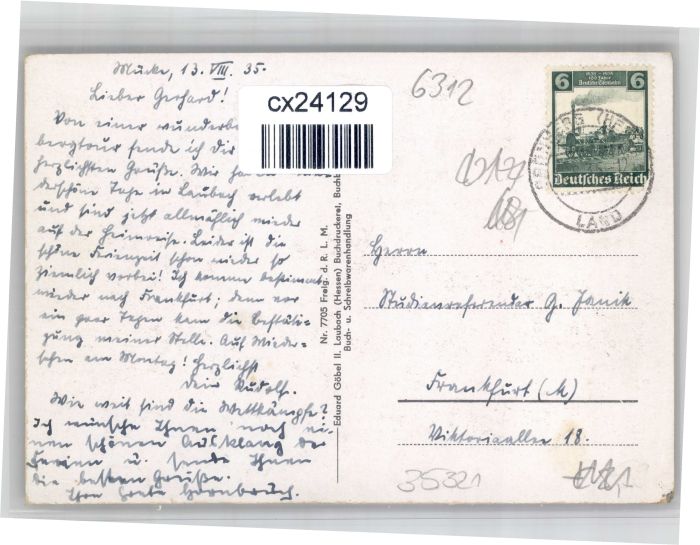 Mücke, 13. VIII. 35.
Lieber Gerhard!
Von einer wunderb
bergtour sende ich dir
herzlichsten Grüße. Wir ha
derschöne Tage in Laubach verlebt
und sind jetzt allmählich wieder
auf der Heimreise. Leider ist die
schöne Ferienzeit schon wieder so
ziemlich vorbei! Ich komme bestimmt
wieder nach Frankfurt; denn vor
ein paar Tagen kam die Bestäti-
gung meiner Stelle. Auf Wieder-
sehen am Montag! Herzlichst
Dein Rudolf.
Wie weit sind die Wettkämpfe?
Ich wünsche Ihnen noch ei-
nen schönen Ausklang der
Ferien u. sende Ihnen
die besten Grüße.
Ihre Grete Hornbruch.
cx24129
Nr. 7705 Freig. d. R. L. M.
Eduard Göbel II. Laubach (Hessen) Buchdruckerei, Buchb
Buch- u. Schreibwarenhandlung
6312
6 6
Deutsches Reich
LAND
Herrn
Studienreferendar G. Janik
Frankfurt (M)
Viktoriaallee 18.
35321